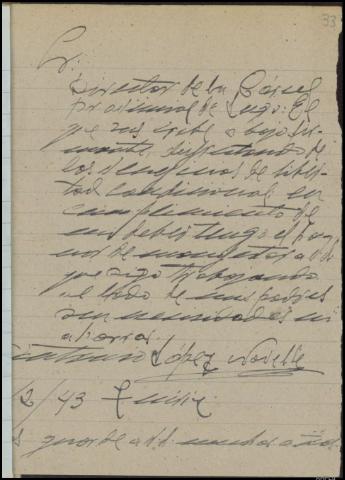 33
Sr.
Director de la Cárcel
provincial de Lugo: El
que suscribe abajo fir-
mante disfrutando de
los beneficios de liber-
tad condicional en
cumplimiento de
mi deber tengo el ho
nor de manifestar a Vd
que sigo trabajando
al lado de mis padres
sin novedades ni
Antonio López Novelle
2/43
guarde a Vd. muchos años